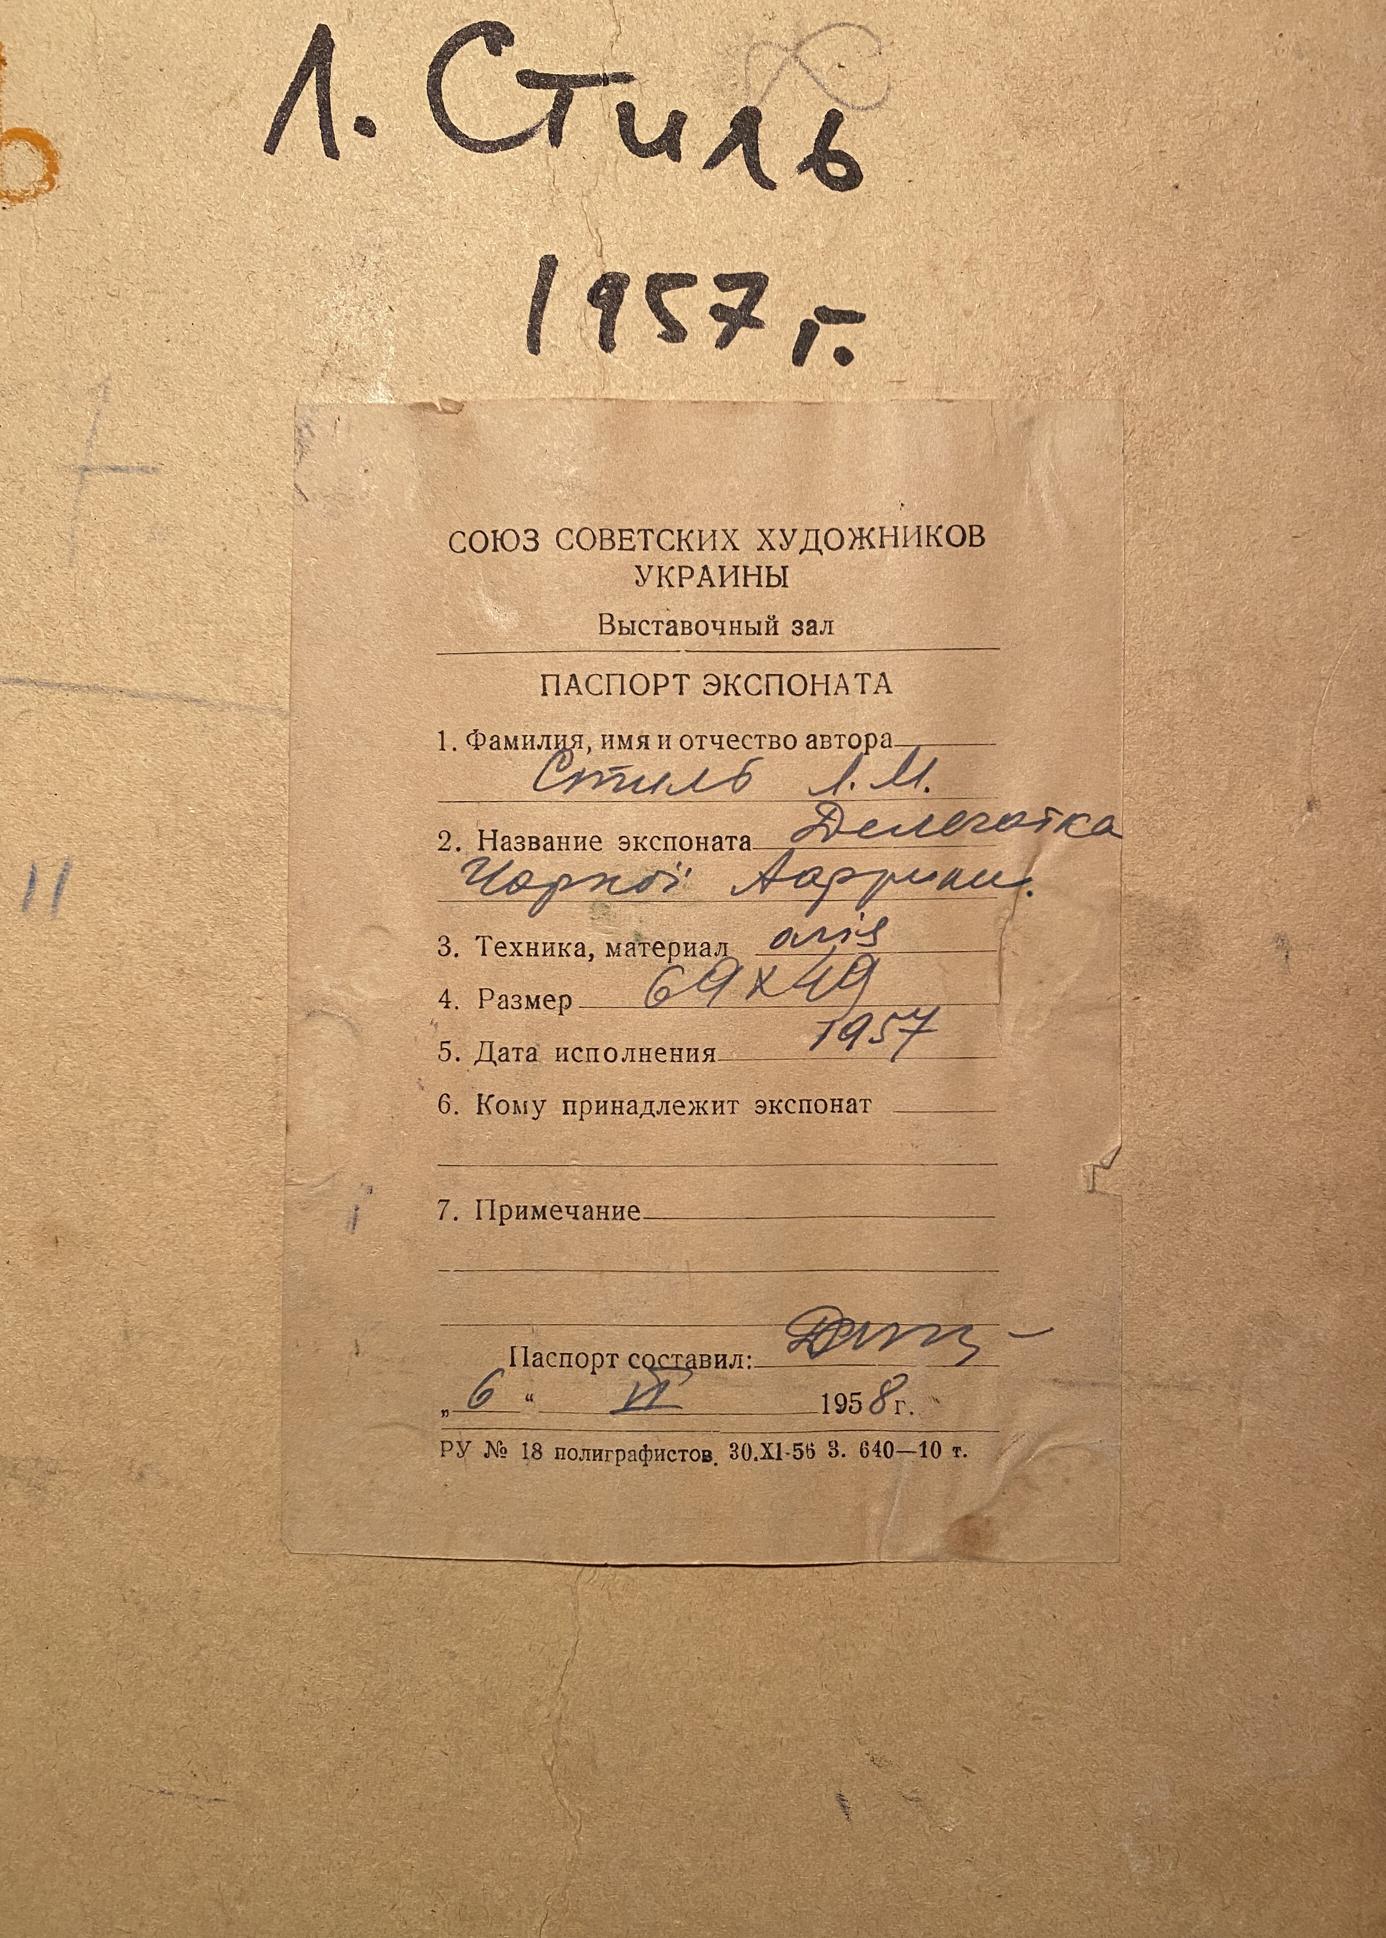 Л. Стиль
1957 г.
СОЮЗ СОВЕТСКИХ ХУДОЖНИКОВ
УКРАИНЫ
Выставочный зал
ПАСПОРТ ЭКСПОНАТА
1. Фамилия, имя и отчество автора
Стиль Л. М.
2. Название экспоната Делегатка
Чорної Африки.
3. Техника, материал олія
4. Размер 69 х 49
5. Дата исполнения 1957
6. Кому принадлежит экспонат
7. Примечание
Паспорт составил:
„ 6 “ VI 1958 г.
РУ № 18 полиграфистов. 30.XI-56 З. 640—10 т.
11